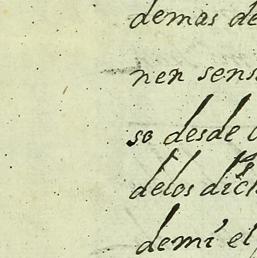 demas de
nen sens
so desde
delos dich
demi el